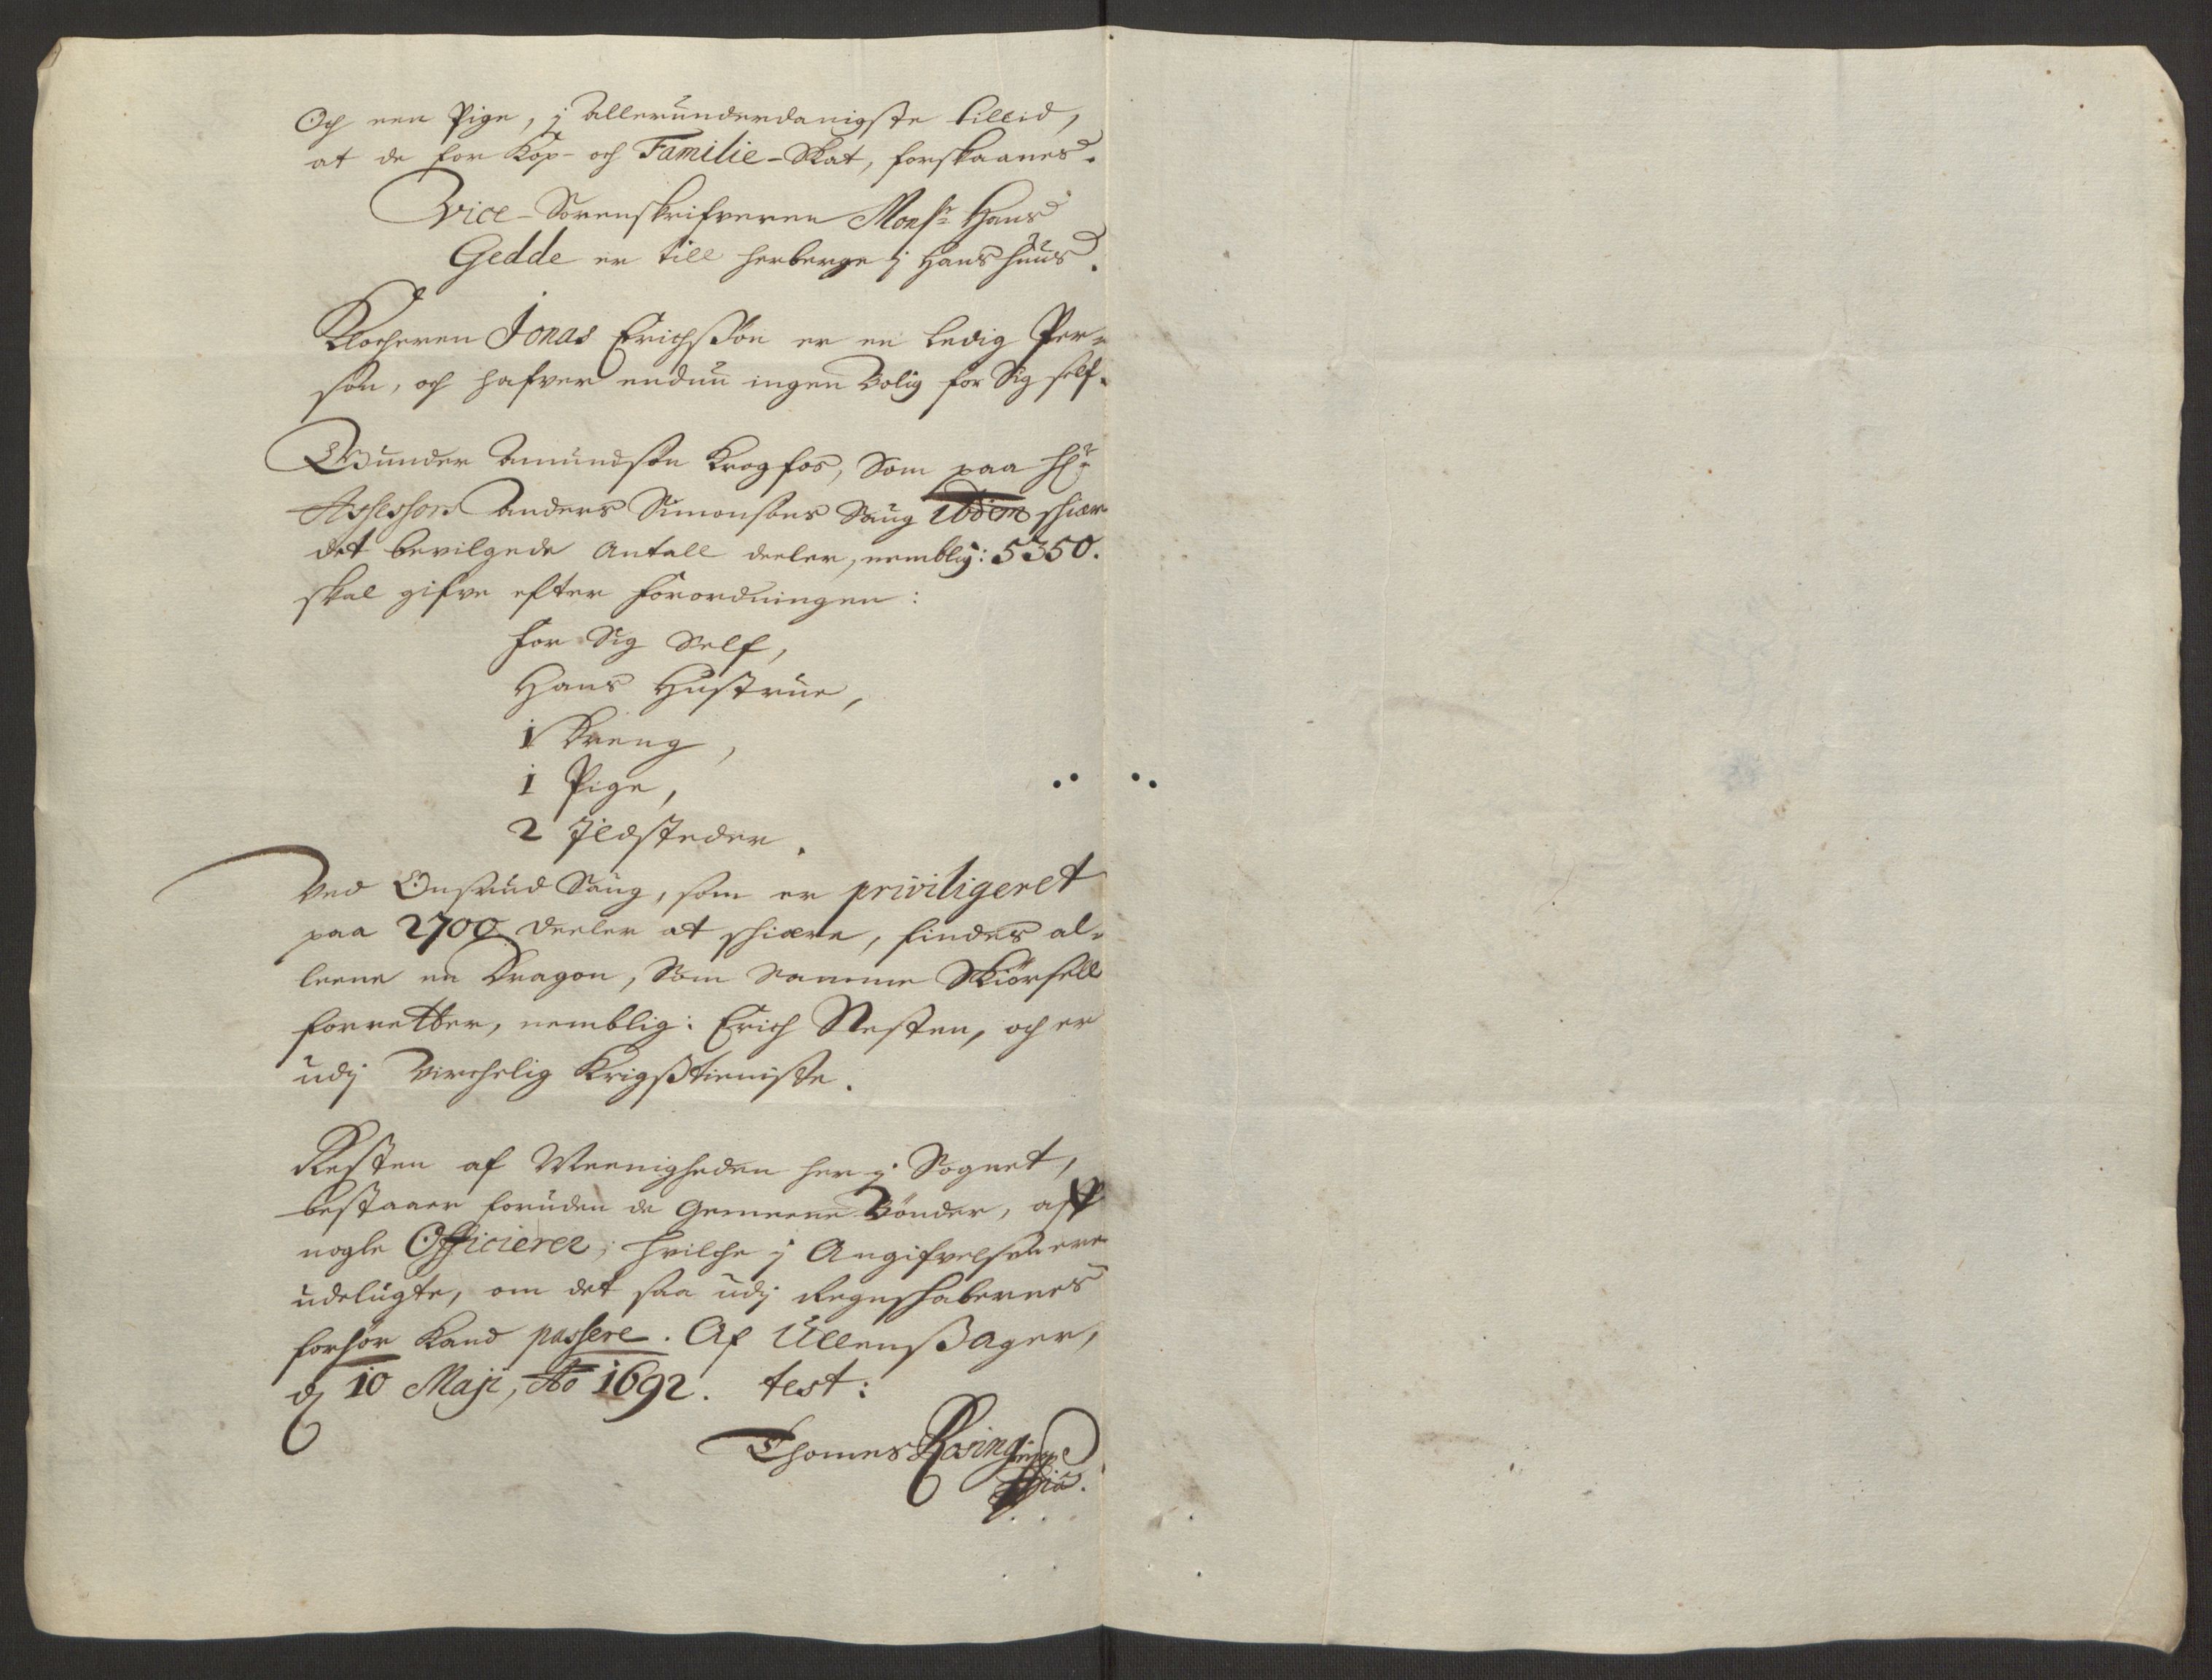 Och een Pige, j allerunderdanigste tillid,
at de for Kop- och Familie-Skat, forskaanes.
Vice-Sorenskrifveren Monsr Hans
Gedde er till herberge j hans huus.
Klocheren Jonas Erichssøn er en ledig Per-
søn, och hafver enduu ingen Bolig for Sig self.
Gunder Amundsøn Krogfos, Som paa Hr
Assessors Anders Simonsøns Saug ibidem skiær
det bevilgede Antall deeler, nemblig: 5350.
skal gifve efter forordningen:
for Sig Self,
Hans Hustrue,
1 Dreng,
1 Pige,
2 Ildsteder.
Ved Onsrud Saug, som er priviligeret
paa 2700 deeler at skiære, findes al-
leene en Dragon, Som samme Skiørsell
forretter, nemblig: Erich Nesten, och er
udj virchelig Krigstienniste.
Resten af Meenigheden her j Sognet,
bestaaer foruden de Gemeene Bønder, aff
nogle Officierer, hvilche j Angifvelsen ere
udelugte, om det saa udj Regnskabernes
forhør kand passere. Af Ullensager,
d 10 Maji, Ao 1692. test:
Thomes Rosing